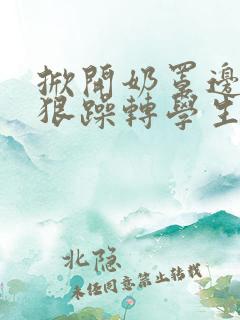 掀開奶罩邊
狠躁轉學生
北隐
未任同意禁止转载